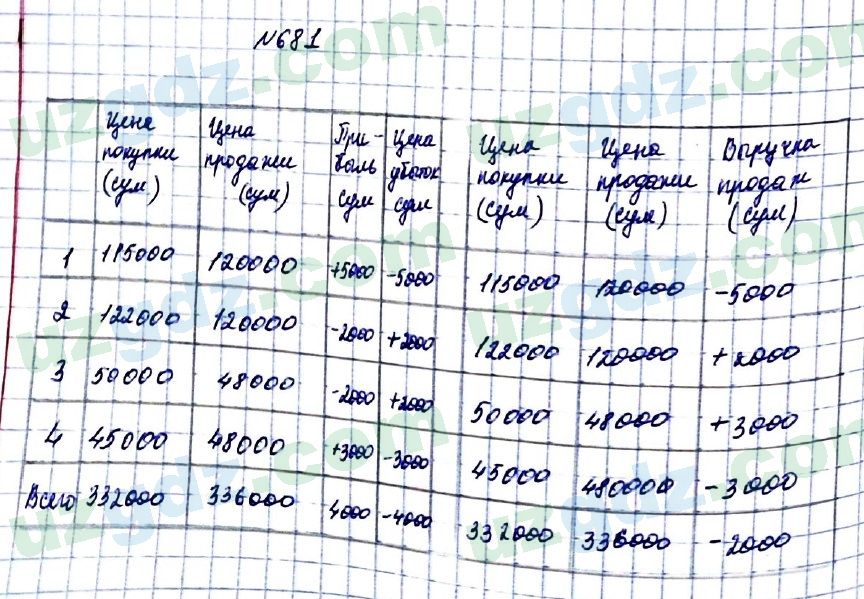 №681
Цена покупки (сум) Цена продажи (сум) При-быль сум Цена убыток сум Цена покупки (сум) Цена продажи (сум) Выручка продаж (сум)
1 115000 120000 +5000 -5000 115000 120000 -5000
2 122000 120000 -2000 +2000 122000 120000 +2000
3 50000 48000 -2000 +2000 50000 48000 +3000
4 45000 48000 +3000 -3000 45000 480000 -3000
Всего 332000 336000 4000 -4000 332000 336000 -2000
uzgdz.com
uzgdz.com
uzgdz.com
uzgdz.com
uzgdz.com
uzgdz.com